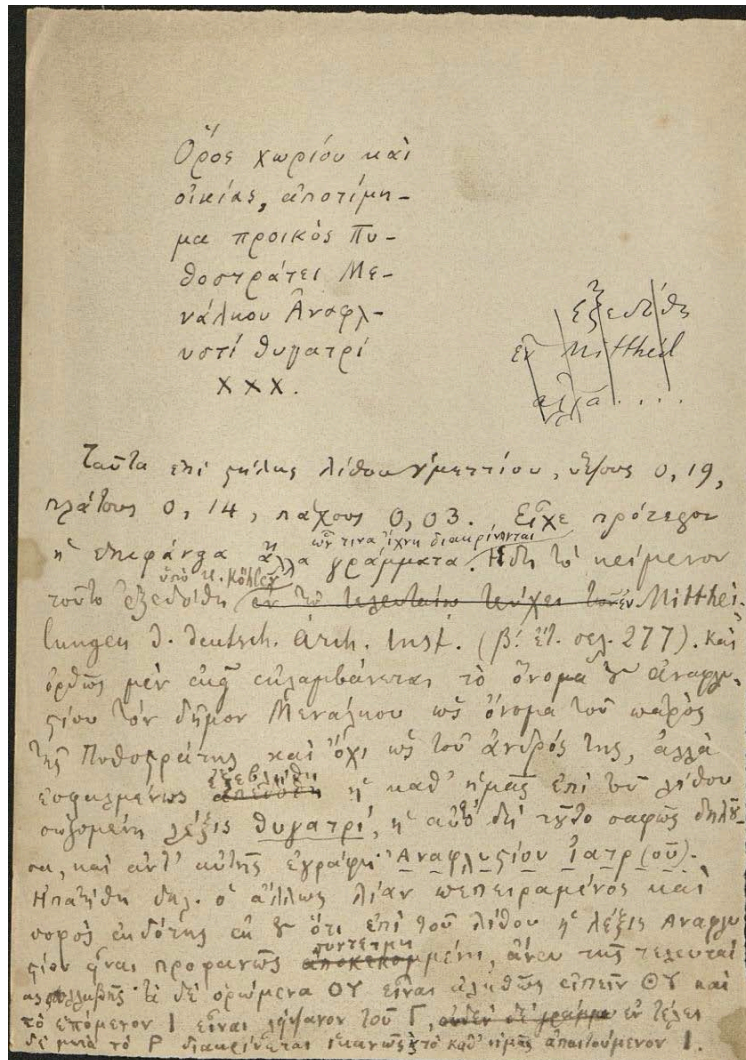 Ὅρος χωρίου καὶ
οἰκίας, ἀποτίμη-
μα προικὸς Πυ-
θοστράτει Με-
νάλκου Ἀναφλ-
υστί θυγατρί
Χ Χ Χ.
ἐξεδόθη
ἐν Mittheil
ἀλλὰ . . . .
Ταῦτα ἐπὶ στήλης λίθου Ὑμεττίου, ὕψους 0,19,
πλάτους 0,14, πάχους 0,03. Εἶχε πρότερον
ὧν τινα ἴχνη διακρίνονται
ἡ ἐπιφάνεια ἄλλα γράμματα. Ἤδη τὸ κείμενον
ὑπὸ U. Köhler
τοῦτο ἐξεδόθη ἐν τῷ τελευταίῳ τεύχει τῶν ἐν Mitthei-
lungen d. deutsch. Arch. Inst. (β΄. ἔτ. σελ. 277). Καὶ
ὀρθῶς μὲν ἐκλαμβάνεται τὸ ὄνομα τοῦ Ἀναφλυ-
στίου τὸν δῆμον Μενάλκου ὡς ὄνομα τοῦ πατρὸς
τῆς Πυθοστράτης καὶ ὄχι ὡς τοῦ ἀνδρός της, ἀλλὰ
ἐξεβλήθη
ἐσφαλμένως ἡ καθ' ἡμᾶς ἐπὶ τοῦ λίθου
σωζομένη λέξις θυγατρί, ἡ αὐτὸ δὴ τοῦτο σαφῶς δηλοῦ-
σα, καὶ ἀντ' αὐτῆς ἐγράφη Ἀναφλυστίου Ἰατρ(οῦ).
Ἠπατήθη δηλ. ὁ ἄλλως λίαν πεπειραμένος καὶ
σοφὸς ἐκδότης ἐκ τοῦ ὅτι ἐπὶ τοῦ λίθου ἡ λέξις Ἀναφλυ
συντετμη
στίου εἶναι προφανῶς ἀποκεκομμένη, ἄνευ τῆς τελευταί
ας συλλαβῆς τὰ δὲ ὁρώμενα ΟΥ εἶναι ἀληθῶς εἰπεῖν ΘΥ καὶ
τὸ ἑπόμενον Ι εἶναι λείψανον τοῦ Γ, οὐδὲν δὲ γράμμα ἐν τέλει
δὲ μετὰ τὸ Ρ διακρίνεται ἱκανῶς τὸ καθ' ἡμᾶς ἀπαιτούμενον Ι.